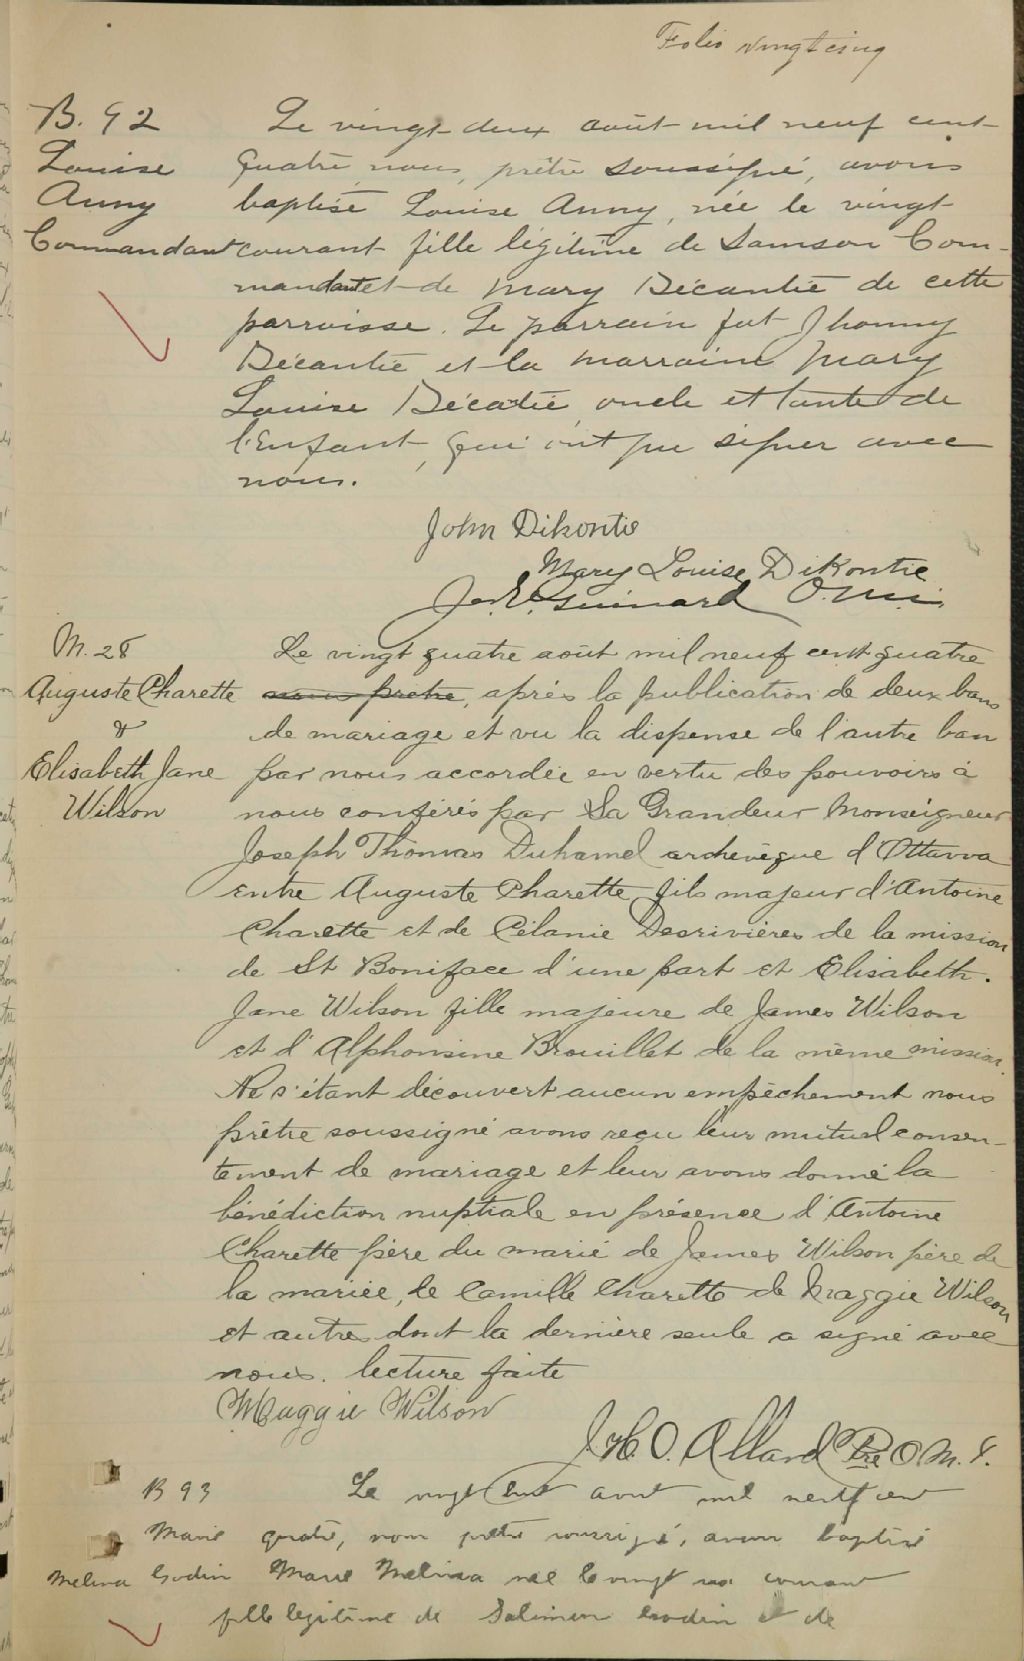 Folio vingt cinq
B. 92
Louise
Anny
Commandant
Le vingt-deux août mil neuf cent
quatre nous, prêtre soussigné, avons
baptisé Louise Anny, née le vingt
courant fille légitime de Samson Com-
mandant et de Mary Décantie de cette
parroisse. Le parrain fut Jhonny
Décantie et la marraine Mary
Louise Décatie oncle et tante de
l'Enfant, qui ont pu signer avec
nous.
John Dikontie
Mary Louise Dikontie
J. E. Guinard O.m.i.
M. 28
Auguste Charette
&
Elisabeth Jane
Wilson
Le vingt quatre août mil neuf cent quatre
nous prêtre, après la publication de deux bans
de mariage et vu la dispense de l'autre ban
par nous accordée en vertu des pouvoirs à
nous conférés par Sa Grandeur Monseigneur
Joseph Thomas Duhamel archevêque d'Ottawa
entre Auguste Charette fils majeur d'Antoine
Charette et de Célanie Desrivières de la mission
de St Boniface d'une part et Elisabeth.
Jane Wilson fille majeure de James Wilson
et d'Alphonsine Brouillet de la même mission.
Ne s'étant découvert aucun empêchement nous
prêtre soussigné avons reçu leur mutuel consen-
tement de mariage et leur avons donné la
bénédiction nuptiale en présence d'Antoine
Charette père du marié de James Wilson père de
la mariée, de Camille Charette de Maggie Wilson
et autres dont la dernière seule a signé avec
nous. lecture faite
Maggie Wilson
J. H. O. Allard Ptre O M. I.
B 93
Marie
Melina Godin
Le vingt août mil neuf cent
quatre, nous prêtre soussigné, avons baptisé
Marie Melina née le vingt courant
fille legitime de Godin et de